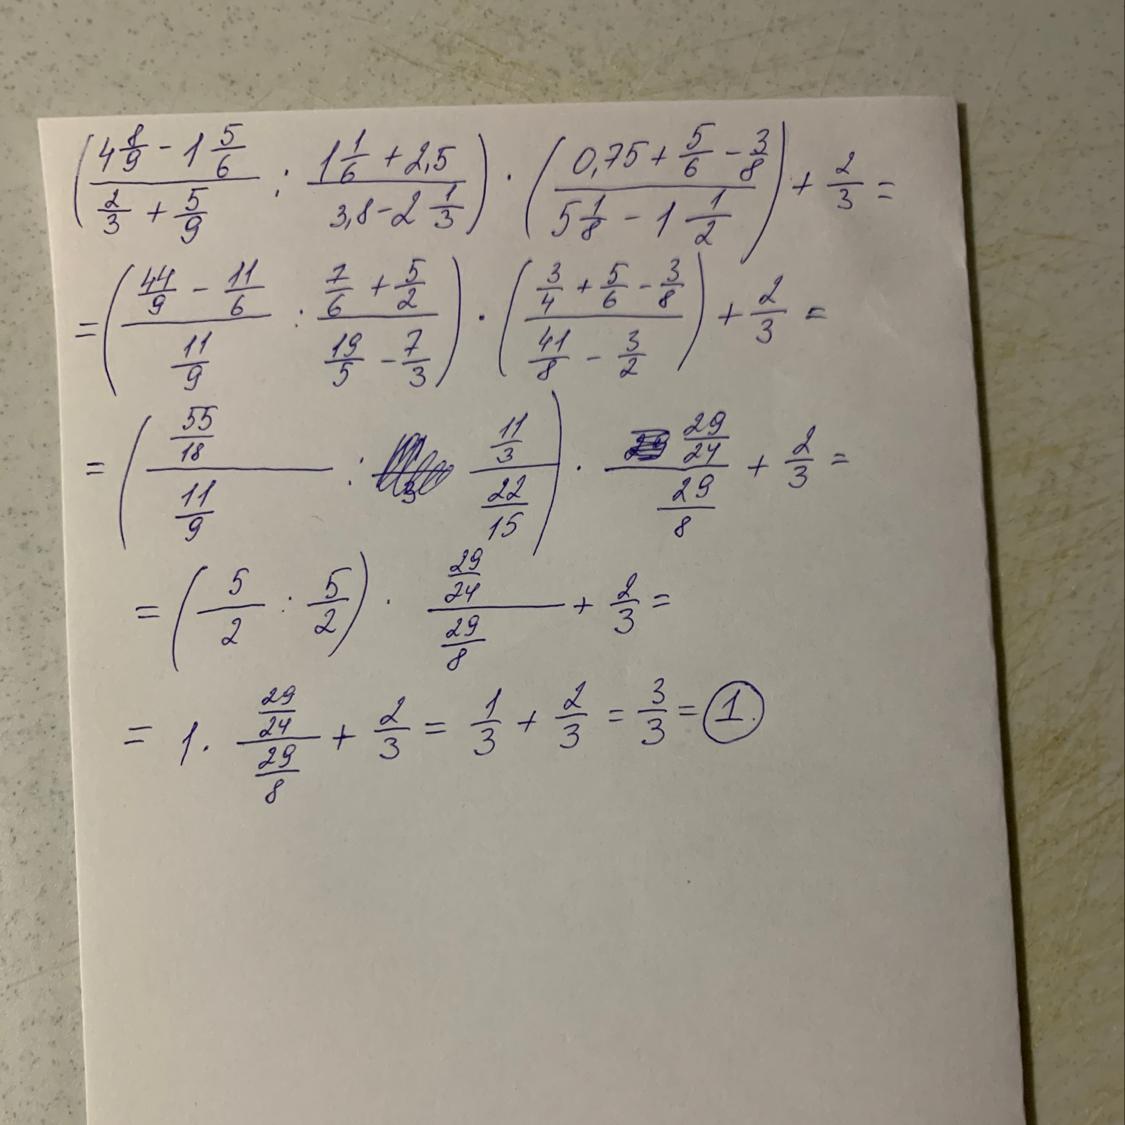 (4 8/9 - 1 5/6 / 2/3 + 5/9 : 1 1/6 + 2,5 / 3,8 - 2 1/3) · (0,75 + 5/6 - 3/8 / 5 1/8 - 1 1/2) + 2/3 =
= (44/9 - 11/6 / 11/9 : 7/6 + 5/2 / 19/5 - 7/3) · (3/4 + 5/6 - 3/8 / 41/8 - 3/2) + 2/3 =
= (55/18 / 11/9 : 11/3 / 22/15) · 29/24 / 29/8 + 2/3 =
= (5/2 : 5/2) · 29/24 / 29/8 + 2/3 =
= 1 · 29/24 / 29/8 + 2/3 = 1/3 + 2/3 = 3/3 = 1.